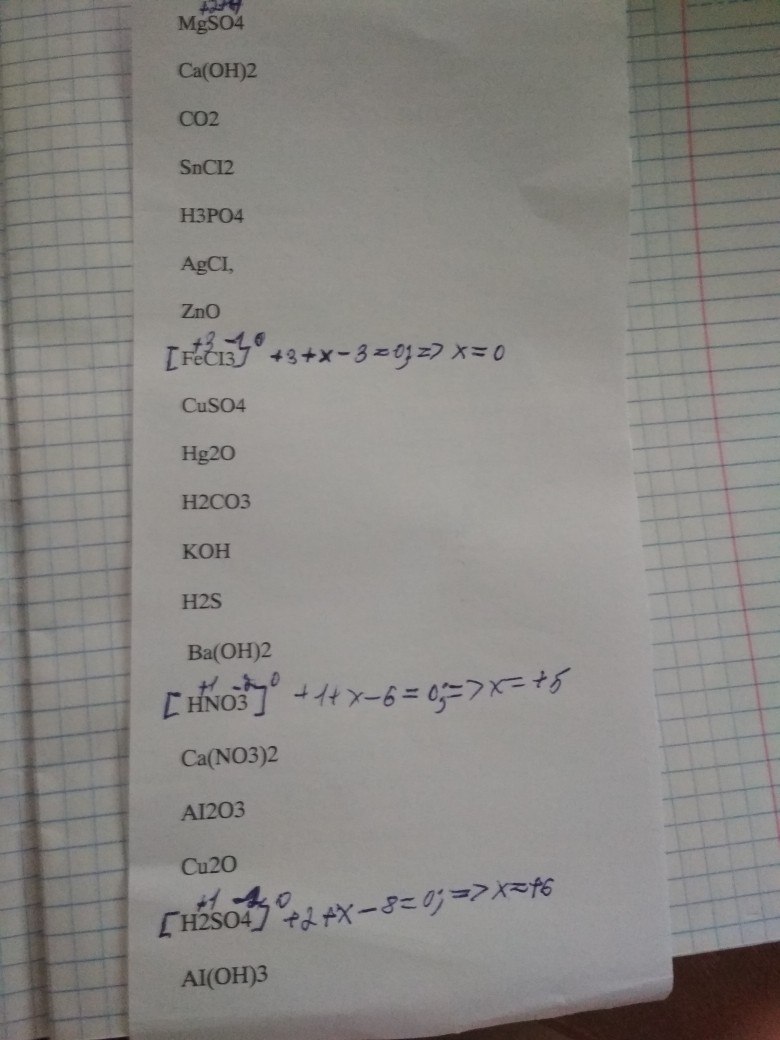 MgSO4
Ca(OH)2
CO2
SnCI2
H3PO4
AgCI,
ZnO
+3 -1 0
[FeCI3] +3+x-3=0; => x=0
CuSO4
Hg2O
H2CO3
KOH
H2S
Ba(OH)2
+1 -2 0
[HNO3] +1+x-6=0; => x=+5
Ca(NO3)2
AI2O3
Cu2O
+1 -2 0
[H2SO4] +2+x-8=0; => x=+6
AI(OH)3